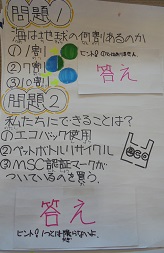 問題1
海は地球の何割あるのか
①1割
②7割
③10割
答え
問題2
私たちにできることは?
①エコバック使用
②ペットボトルリサイクル
③MSC認証マークが
ついているのを買う。
答え